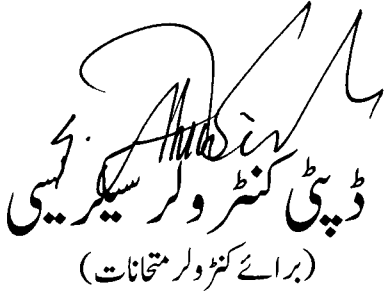 ڈپٹی کنٹرولر سیکریسی
(برائے کنٹرولر متحانات)